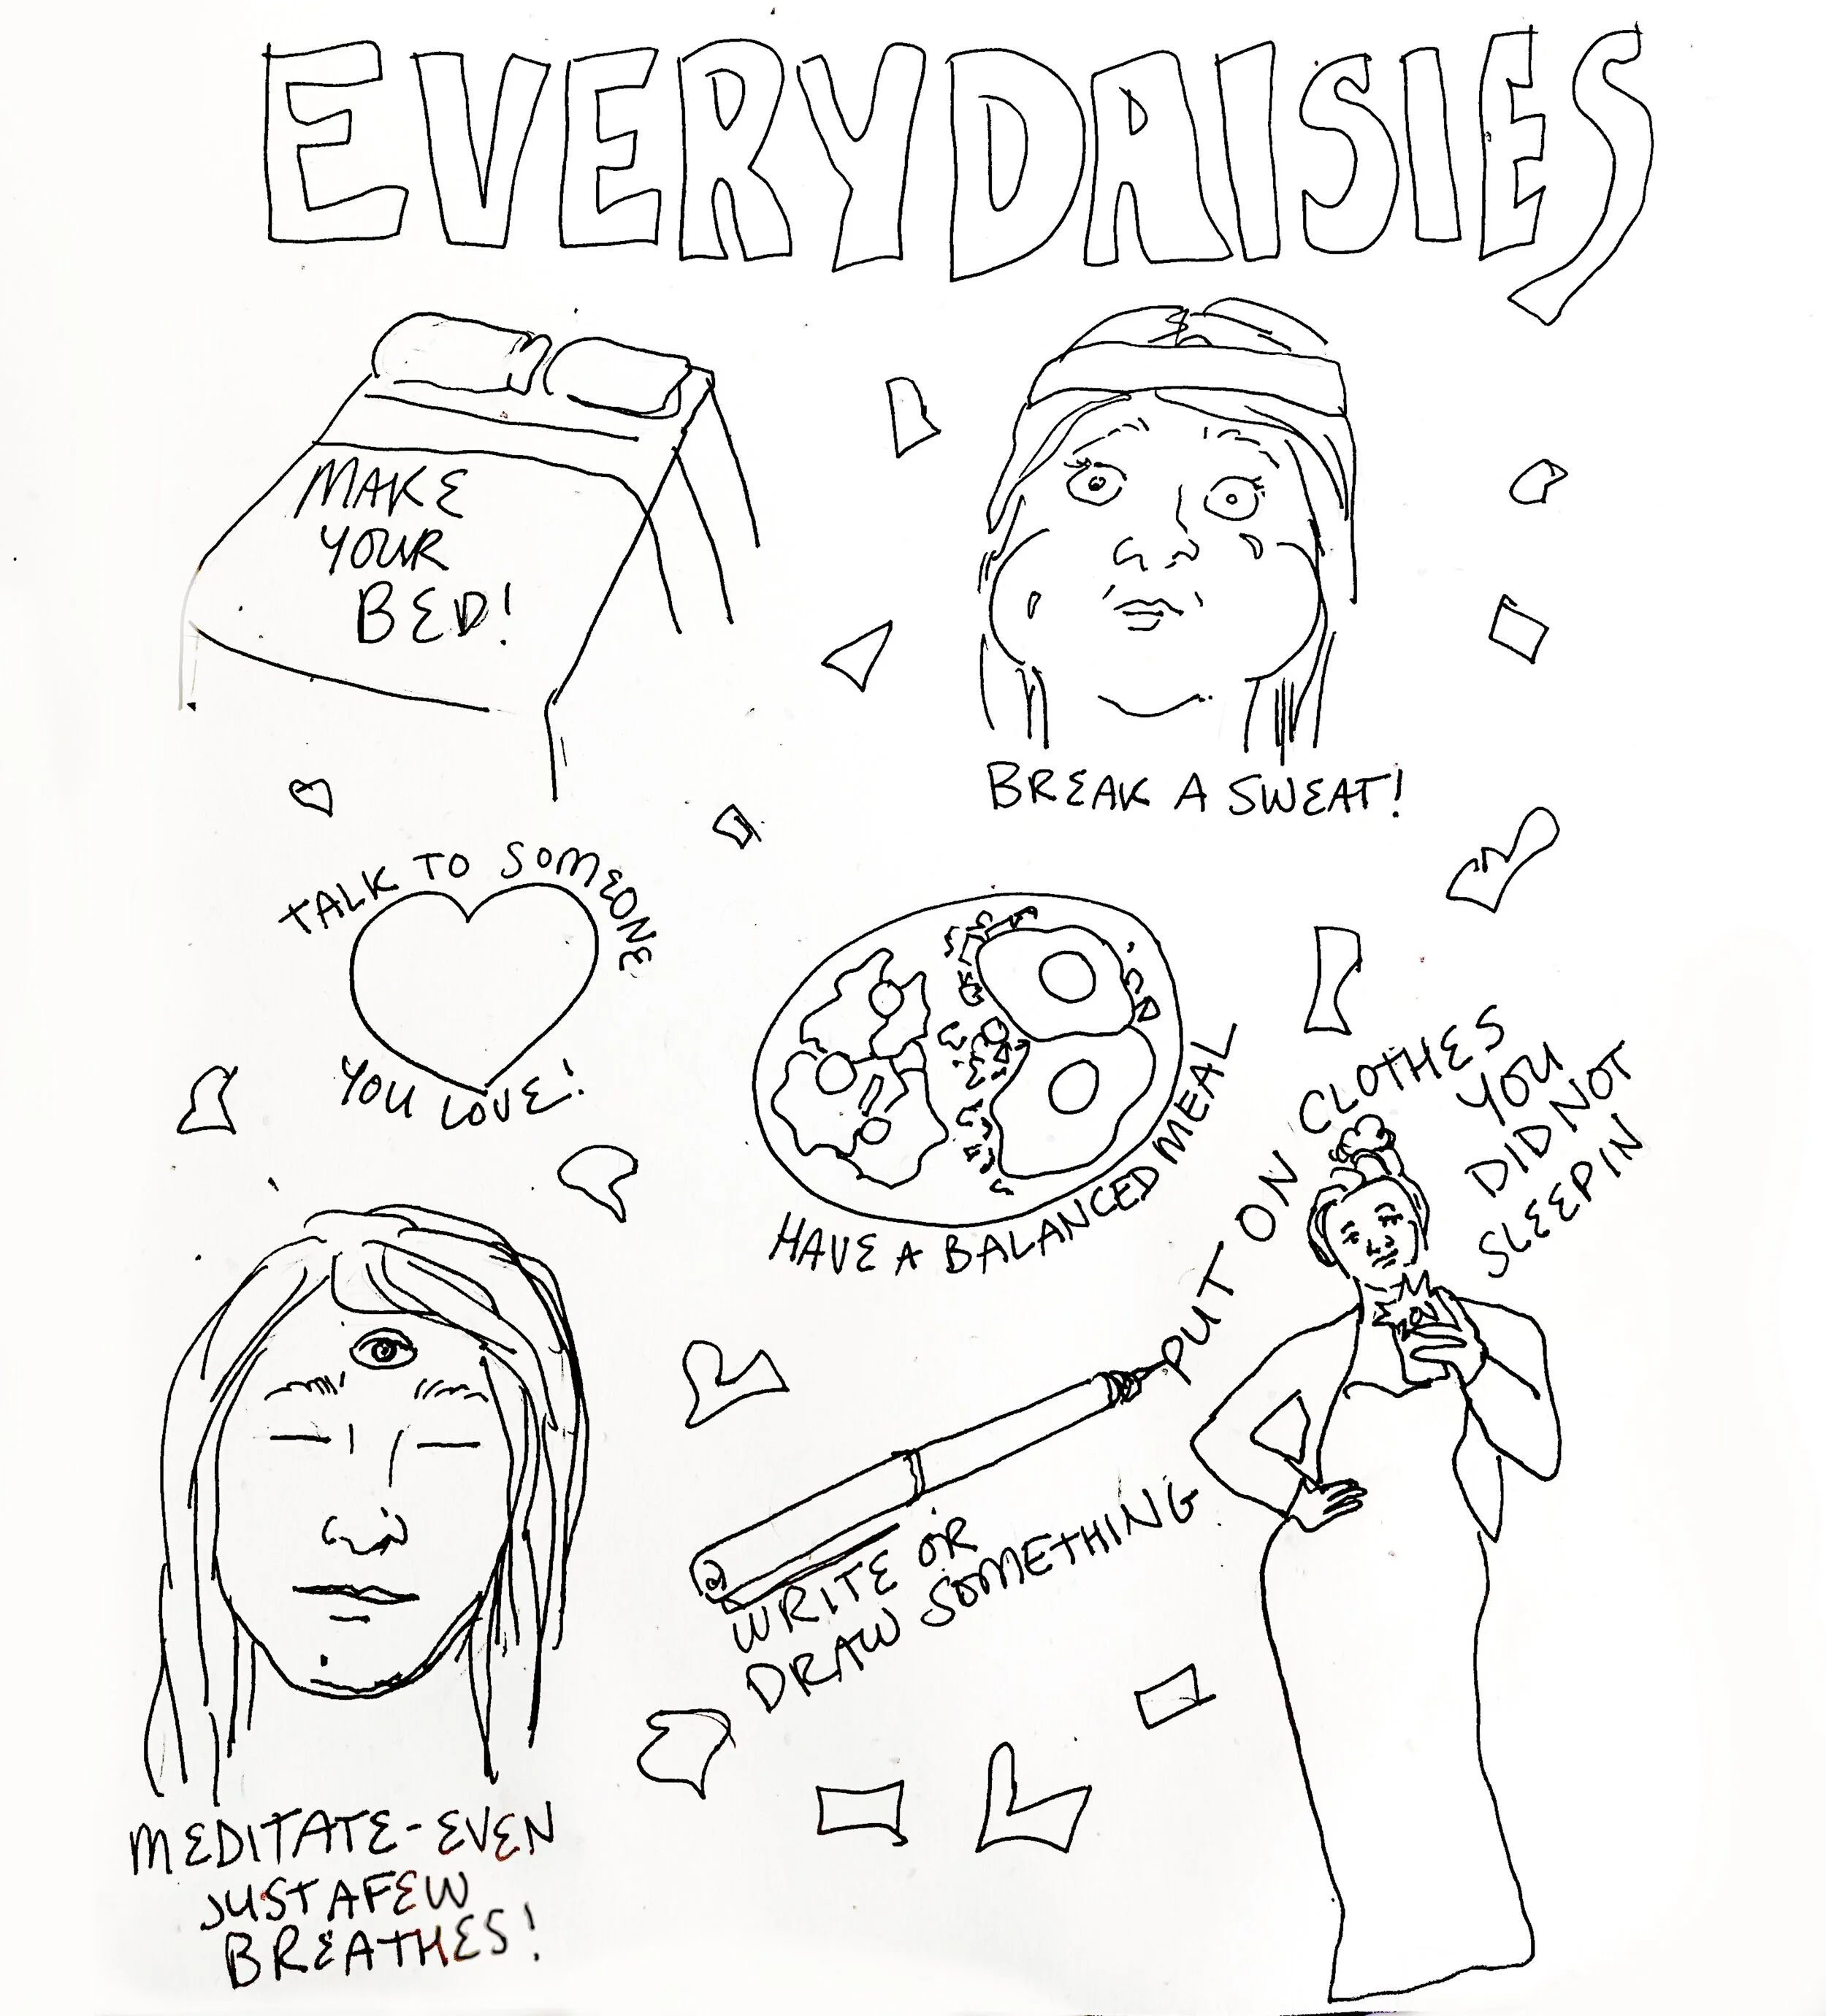 EVERYDAISIES
MAKE
YOUR
BED!
BREAK A SWEAT!
TALK TO SOMEONE
YOU LOVE!
HAVE A BALANCED MEAL
PUT ON CLOTHES
YOU
DID NOT
SLEEP IN
WRITE OR
DRAW SOMETHING
MEDITATE-EVEN
JUST A FEW
BREATHES!